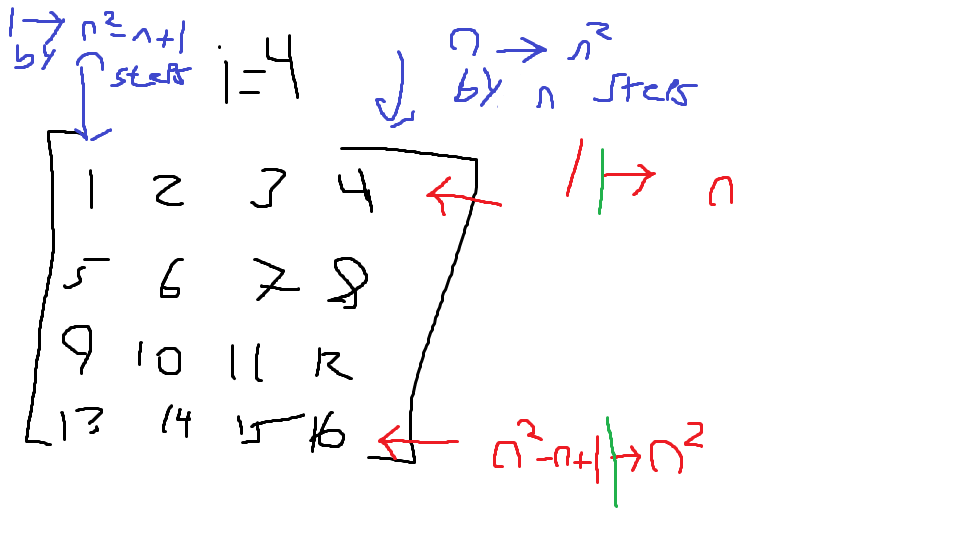 1 → n²-n+1
by n steps
i=4
n → n²
by n steps
1 2 3 4
1 → n
5 6 7 8
9 10 11 12
13 14 15 16
n²-n+1 → n²